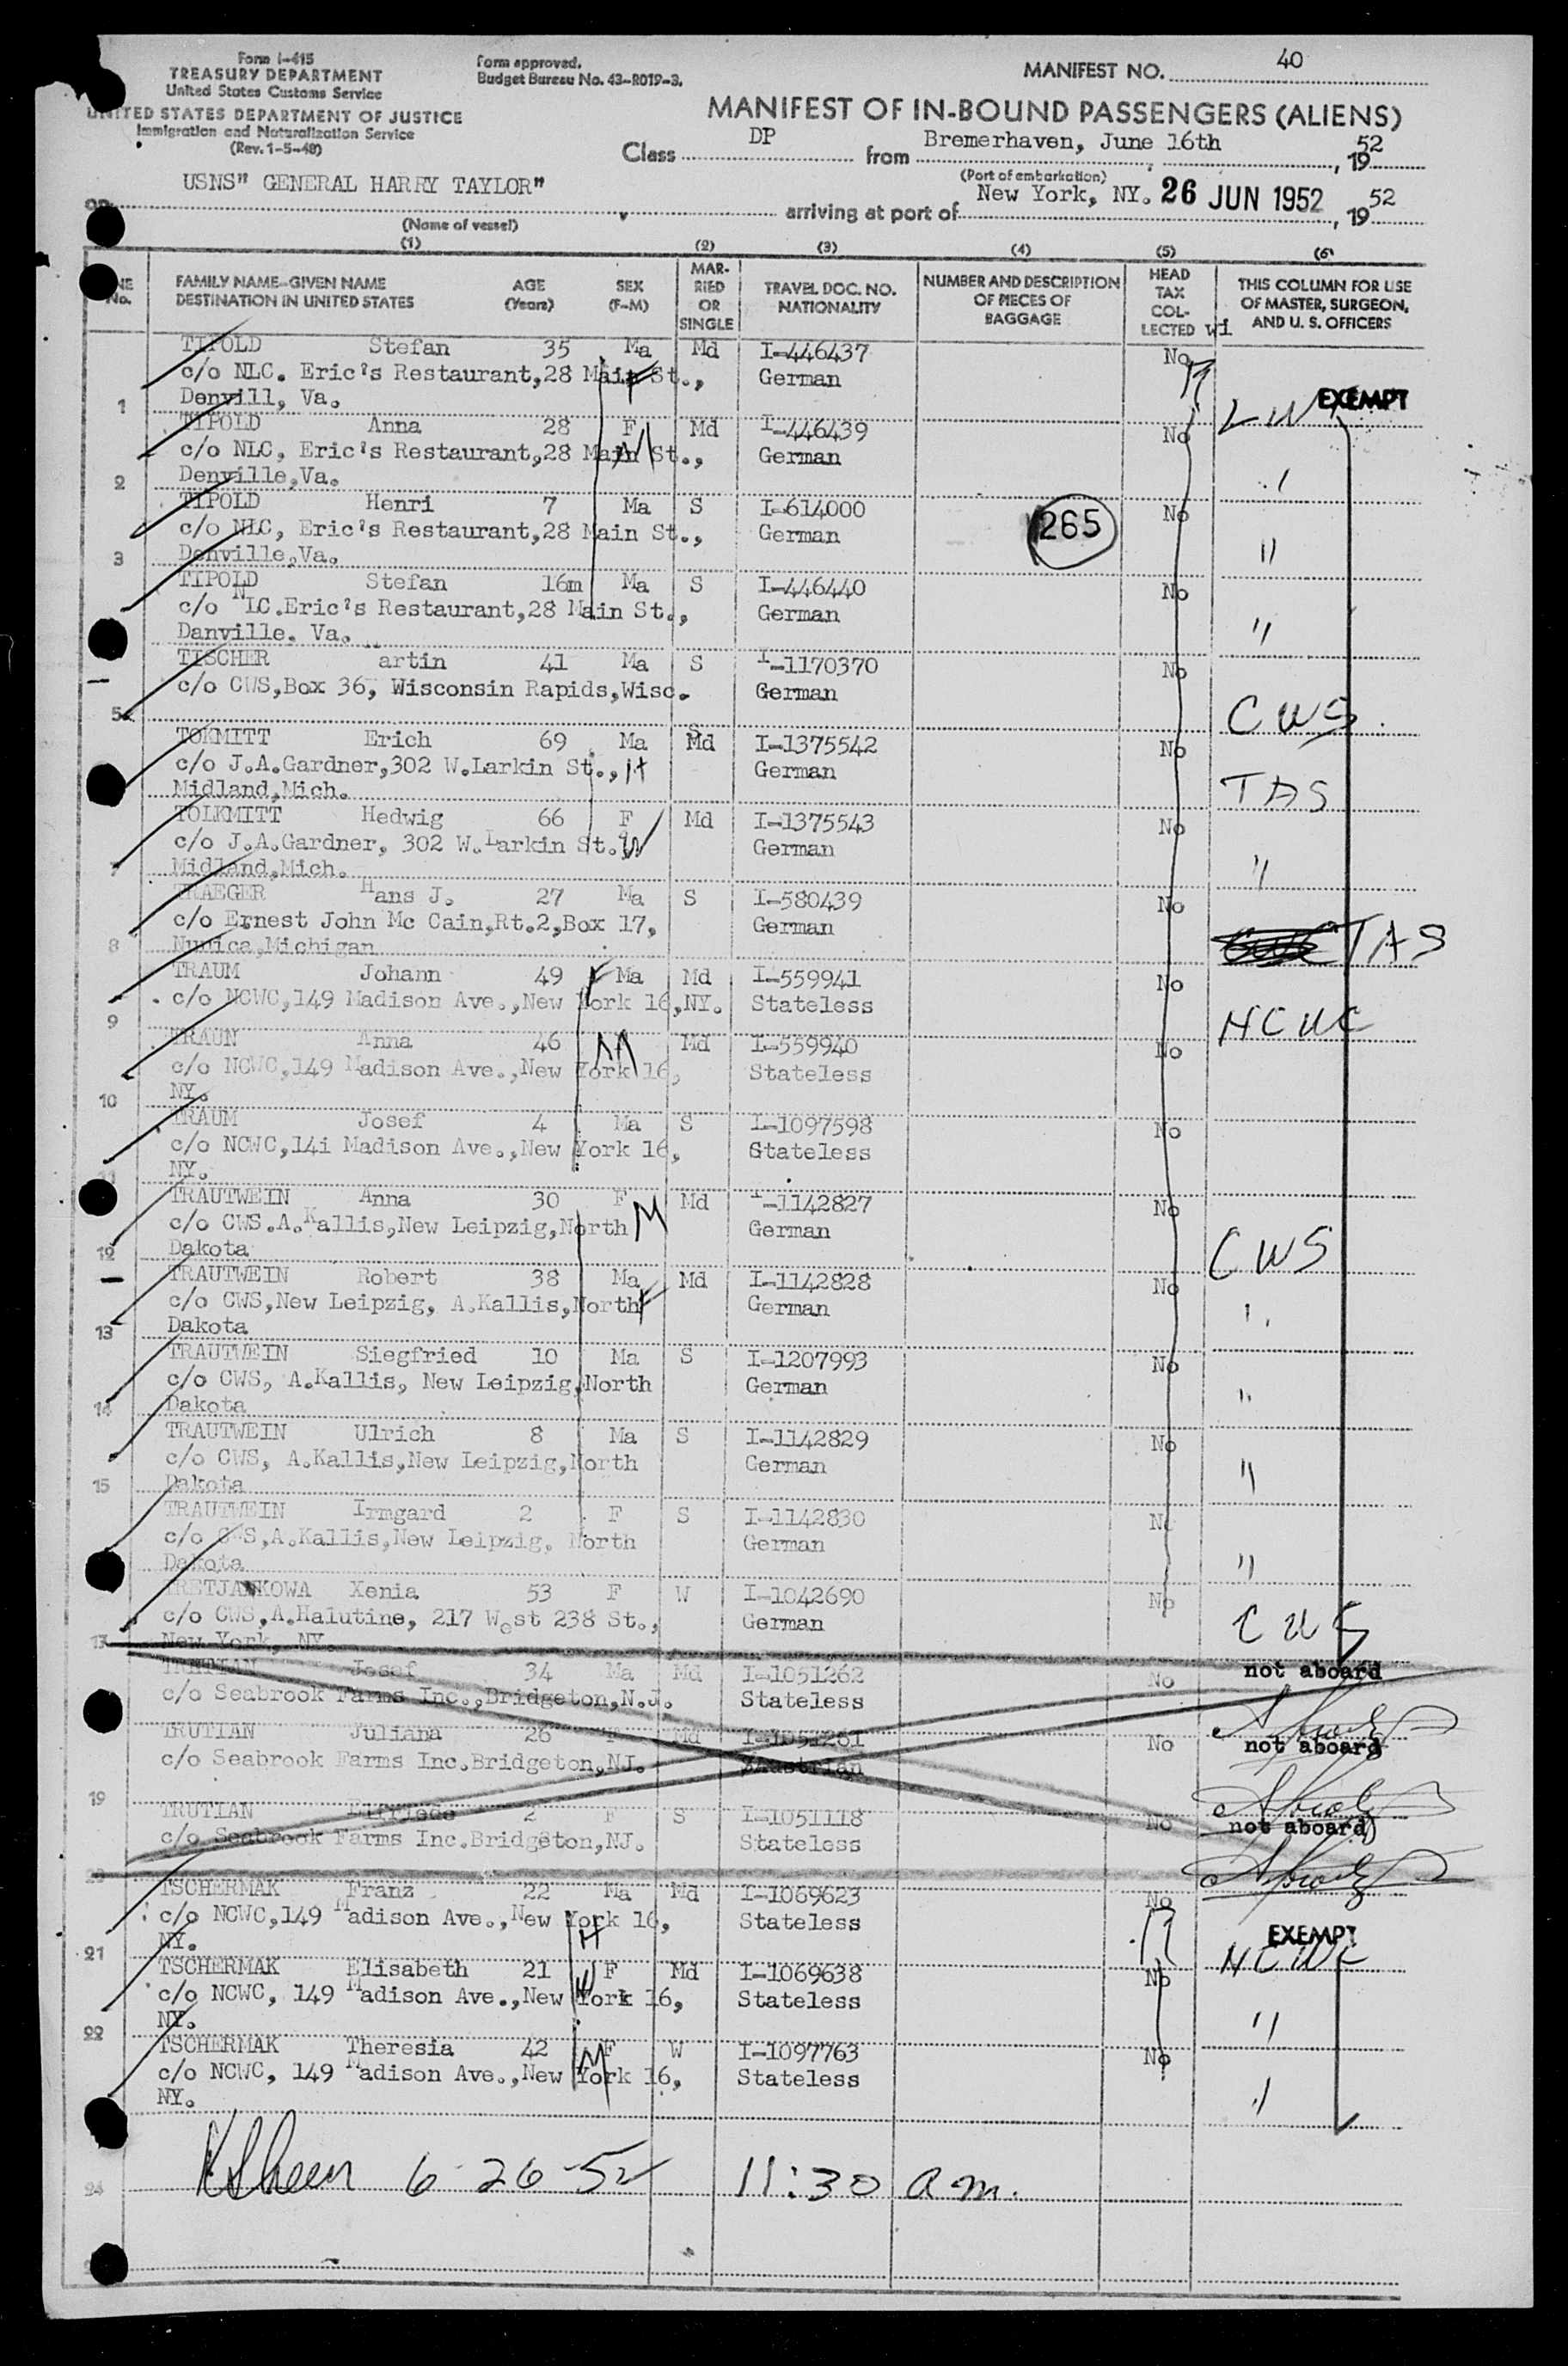 Form I-415
TREASURY DEPARTMENT
United States Customs Service
UNITED STATES DEPARTMENT OF JUSTICE
Immigration and Naturalization Service
(Rev. 1-5-48)
Form approved.
Budget Bureau No. 43-R019-3.
MANIFEST NO. 40
MANIFEST OF IN-BOUND PASSENGERS (ALIENS)
Class DP from Bremerhaven, June 16th, 1952
(Port of embarkation)
on USNS" GENERAL HARRY TAYLOR" arriving at port of New York, NY. 26 JUN 1952, 1952
(Name of vessel)
(1) (2) (3) (4) (5) (6)
LINE No. FAMILY NAME-GIVEN NAME DESTINATION IN UNITED STATES AGE (Years) SEX (F-M) MARRIED OR SINGLE TRAVEL DOC. NO. NATIONALITY NUMBER AND DESCRIPTION OF PIECES OF BAGGAGE HEAD TAX COLLECTED THIS COLUMN FOR USE OF MASTER, SURGEON, AND U. S. OFFICERS
wi
TIPOLD Stefan 35 Ma Md I-446437 No
c/o NLC. Eric's Restaurant,28 Main St., German
1 Denvill, Va. EXEMPT
TIPOLD Anna 28 F Md I-446439 No
c/o NLC, Eric's Restaurant,28 Main St., German
2 Denville,Va. "
TIPOLD Henri 7 Ma S I-614000 265 No
c/o NLC, Eric's Restaurant,28 Main St., German
3 Denville,Va. "
TIPOLD Stefan 16m Ma S I-446440 No
c/o NLC.Eric's Restaurant,28 Main St., German
Danville. Va. "
TISCHER Martin 41 Ma S I-1170370 No
c/o CWS,Box 36, Wisconsin Rapids,Wisc. German
5 CWS
TOKMITT Erich 69 Ma Md I-1375542 No
c/o J.A.Gardner,302 W.Larkin St., German
Midland,Mich. TAS
TOLKMITT Hedwig 66 F Md I-1375543 No
c/o J.A.Gardner, 302 W.Larkin St., German
7 Midland,Mich. "
TRAEGER Hans J. 27 Ma S I-580439 No
c/o Ernest John Mc Cain,Rt.2,Box 17, German
8 Nunica,Michigan TAS
TRAUM Johann 49 Ma Md I-559941 No
c/o NCWC,149 Madison Ave.,New York 16,NY. Stateless
9 NCWC
TRAUN Anna 46 Md I-559940 No
c/o NCWC,149 Madison Ave.,New York 16, Stateless
10 NY.
TRAUM Josef 4 Ma S I-1097598 No
c/o NCWC,14i Madison Ave.,New York 16, Stateless
11 NY.
TRAUTWEIN Anna 30 F Md I-1142827 No
c/o CWS.A.Kallis,New Leipzig,North German
12 Dakota CWS
TRAUTWEIN Robert 38 Ma Md I-1142828 No
c/o CWS,New Leipzig, A.Kallis,North German
13 Dakota "
TRAUTWEIN Siegfried 10 Ma S I-1207993 No
c/o CWS, A.Kallis, New Leipzig,North German
14 Dakota "
TRAUTWEIN Ulrich 8 Ma S I-1142829 No
c/o CWS, A.Kallis,New Leipzig,North German
15 Dakota "
TRAUTWEIN Irmgard 2 F S I-1142830 No
c/o CWS,A.Kallis,New Leipzig, North German
Dakota "
TRETJAKOWA Xenia 53 F W I-1042690 No
c/o CWS,A.Halutine, 217 West 238 St., German
17 New York, NY. CWS
TRUTIAN Josef 34 Ma Md I-1051262 No not aboard
c/o Seabrook Farms Inc.,Bridgeton,N.J. Stateless
TRUTIAN Juliana 26 F Md I-1051261 No not aboard
c/o Seabrook Farms Inc.Bridgeton,NJ. Austrian
19
TRUTIAN Elfriede 2 F S I-1051118 No not aboard
c/o Seabrook Farms Inc.Bridgeton,NJ. Stateless
TSCHERMAK Franz 22 Ma Md I-1069623 No
c/o NCWC,149 Madison Ave.,New York 16, Stateless EXEMPT
21 NY. NCWC
TSCHERMAK Elisabeth 21 F Md I-1069638 No
c/o NCWC, 149 Madison Ave.,New York 16, Stateless
22 NY. "
TSCHERMAK Theresia 42 F W I-1097763 No
c/o NCWC, 149 Madison Ave.,New York 16, Stateless
NY. "
6-26-52 11:30 a.m.
24